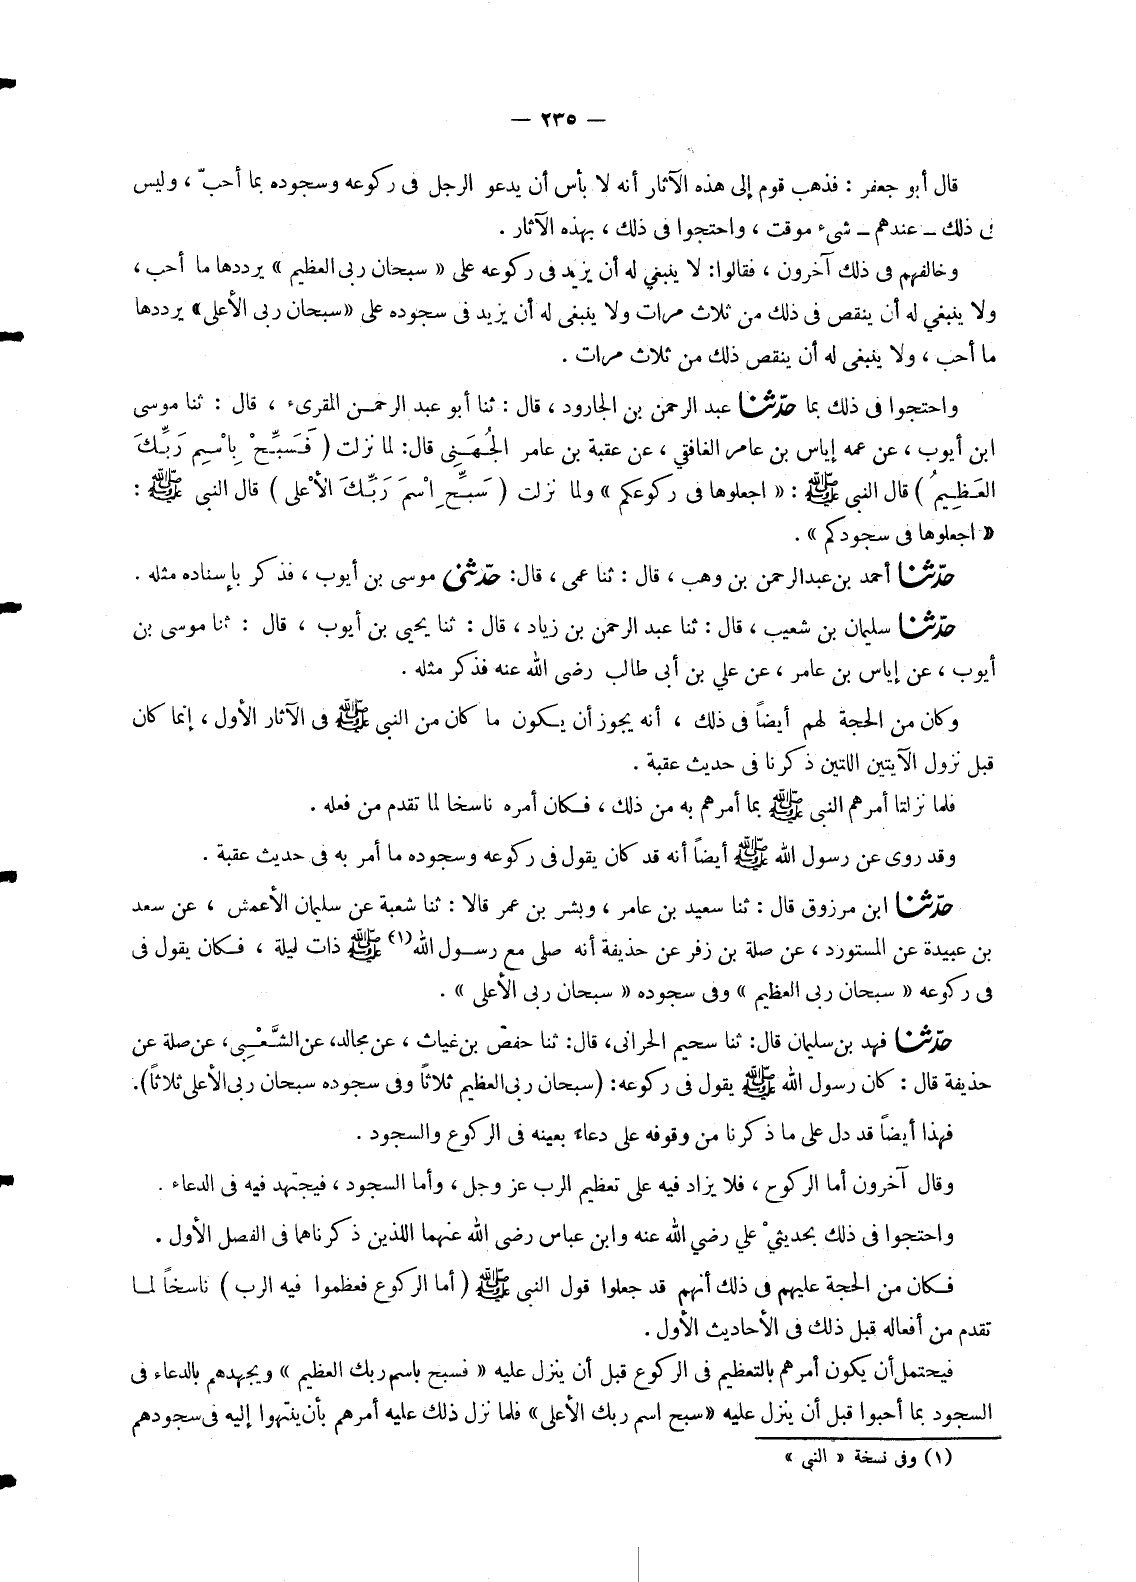 — ٢٣٥ —
قال أبو جعفر : فذهب قوم إلى هذه الآثار أنه لا بأس أن يدعو الرجل فى ركوعه وسجوده بما أحبّ ، وليس
فى ذلك ــ عندهم ــ شىء موقت ، واحتجوا فى ذلك ، بهذه الآثار .
وخالفهم فى ذلك آخرون ، فقالوا: لا ينبغي له أن يزيد فى ركوعه على « سبحان ربى العظيم » يرددها ما أحب ،
ولا ينبغي له أن ينقص فى ذلك من ثلاث مرات ولا ينبغى له أن يزيد فى سجوده على «سبحان ربى الأعلى» يرددها
ما أحب ، ولا ينبغى له أن ينقص ذلك من ثلاث مرات .
واحتجوا فى ذلك بما حدّثنا عبد الرحمن بن الجارود ، قال : ثنا أبو عبد الرحمـن المقرىء ، قال : ثنا موسى
ابن أيوب ، عن عمه إياس بن عامر الغافقي ، عن عقبة بن عامر الجُهَـنِى قال: لما نزلت ( فَسَبِّحْ بِاسْمِ رَبِّكَ
العَـظِـيمُ ) قال النبى ﷺ : « اجعلوها فى ركوعكم » ولما نزلت ( سَبِّحِ اسْمَ رَبِّـكَ الأَعْلى ) قال النبى ﷺ :
« اجعلوها فى سجودكم » .
حدّثنا أحمد بن عبدالرحمن بن وهب ، قال : ثنا عمى ، قال: حدّثنى موسى بن أيوب ، فذكر بإسناده مثله .
حدّثنا سليمان بن شعيب ، قال : ثنا عبد الرحمن بن زياد ، قال : ثنا يحيى بن أيوب ، قال : ثنا موسى بن
أيوب ، عن إياس بن عامر ، عن علي بن أبى طالب رضى الله عنه فذكر مثله .
وكان من الحجة لهم أيضاً فى ذلك ، أنه يجوز أن يـكون ما كان من النبى ﷺ فى الآثار الأول ، إنما كان
قبل نزول الآيتين اللتين ذكرنا فى حديث عقبة .
فلما نزلتا أمرهم النبى ﷺ بما أمرهم به من ذلك ، فـكان أمره ناسخا لما تقدم من فعله .
وقد روى عن رسول الله ﷺ أيضاً أنه قد كان يقول فى ركوعه وسجوده ما أمر به فى حديث عقبة .
حدّثنا ابن مرزوق قال : ثنا سعيد بن عامر ، وبشر بن عمر قالا : ثنا شعبة عن سليمان الأعمش ، عن سعد
بن عبيدة عن المستورد ، عن صلة بن زفر عن حذيفة أنه صلى مع رسـول الله(١) ﷺ ذات ليلة ، فـكان يقول فى
فى ركوعه « سبحان ربى العظيم » وفى سجوده « سبحان ربى الأعلى » .
حدّثنا فهد بن سليمان قال: ثنا سحيم الحرانى، قال: ثنا حفص بن غياث ، عن مجالد، عن الشَّعْـبِى، عن صلة عن
حذيفة قال : كان رسول الله ﷺ يقول فى ركوعه: (سبحان ربى العظيم ثلاثاً وفى سجوده سبحان ربى الأعلى ثلاثاً).
فهذا أيضاً قد دل على ما ذكرنا من وقوفه على دعاء بعينه فى الركوع والسجود .
وقال آخرون أما الركوع ، فلا يزاد فيه على تعظيم الرب عز وجل ، وأما السجود ، فيجتهد فيه فى الدعاء .
واحتجوا فى ذلك بحديثيْ علي رضي الله عنه وابن عباس رضى الله عنهما اللذين ذكرناهما فى الفصل الأول .
فـكان من الحجة عليهم فى ذلك أنهم قد جعلوا قول النبى ﷺ ( أما الركوع فعظموا فيه الرب ) ناسخاً لما
تقدم من أفعاله قبل ذلك فى الأحاديث الأول .
فيحتمل أن يكون أمرهم بالتعظيم فى الركوع قبل أن ينزل عليه « فسبح باسم ربك العظيم » ويجهدهم بالدعاء فى
السجود بما أحبوا قبل أن ينزل عليه «سبح اسم ربك الأعلى» فلما نزل ذلك عليه أمرهم بأن ينتهوا إليه فى سجودهم
(١) وفى نسخة « النبى »